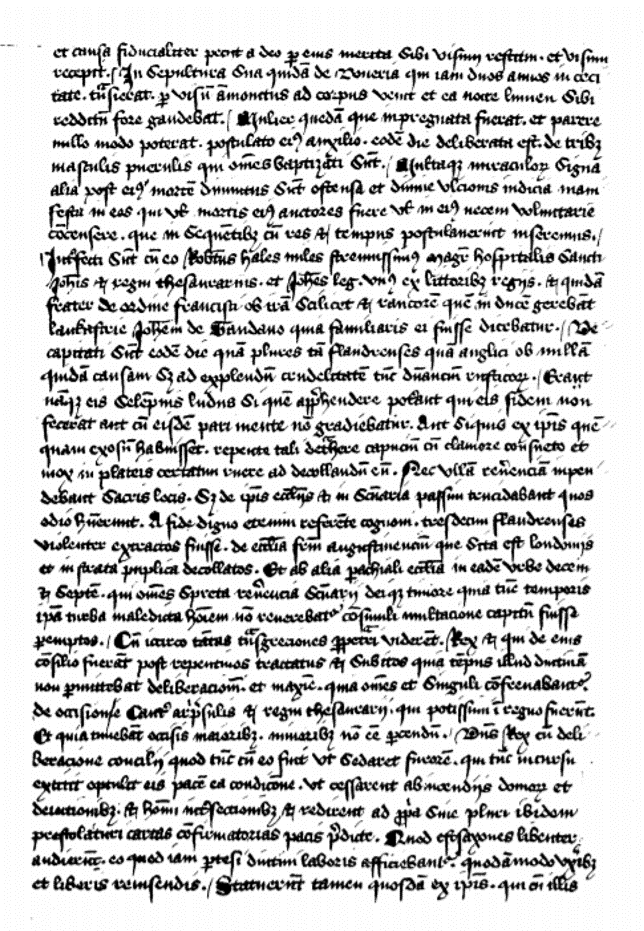 et causa fiducialiter petit a deo ꝑ eius merita sibi visum restitui. et visum
recepit. / In sepultura sua quidā de Coueria qui iam duos annos in ceci
tate. tᵃnsierat. ꝑ visū āmonitus ad corpus venit et ea nocte lumen sibi
redditū fore gaudebat. / Mulier quedā que inpregnata fuerat. et parere
nullo modo poterat. postulato eiꝰ auxilio. eodē die deliberata est. de tribꝫ
masculis puerulis qui om̄es baptizati sūt. / Multaqꝫ miraculoꝝ signa
alia post eiꝰ mortē diuinitus sūt ostensa et diuine vlcionis indicia mani
festa in eos qui vl̄ mortis eiꝰ auctores fuere vl̄ in eiꝰ necem voluntarie
cōcensere. que in sequētibꝫ cū res & tempus postulauerint inseremus. /
Int̄fecti sūt cū eo Rob̄tus hales miles strenuissimꝰ magr̄ hospitalis sancti
Joh̄is & regni thesaurarius. et Joh̄es leg. vnꝰ ex littoribꝫ regijs. & quidā
frater de ordine francisci ob irā scilicet & rancorē quē in ducē gerebāt
lankastrie Joh̄em de Gandauo quia familiaris ei fuisse dicebatur. / De
capitati sūt eodē die quā plures tā flandrenses quā anglici ob nullā
quidā causam sꝫ ad explendū crudelitatē tūc dn̄anciū rusticoꝝ. / Erant
nāqꝫ eis solempnis ludus si quē app̄hendere poterant qui eis fidem non
fecerat aut cū eisdē pari mente nō gradiebatur. Aut siquis ex ip̄is quē
quam exosū habuisset. repente tali det̄here capucium cū clamore consueto et
mox in plateis certatim ruere ad decollandū eū. Nec vllā reu̅enciā inpen
debant sacris locis. sꝫ de ip̄is eccl̄ijs & in sc̄uaria passim trucidabant quos
odio hu̅erunt. A fide digno etenim referēte cognoui. tresdecim flandrenses
violenter extractos fuisse. de eccl̄ia frm̄ augustinenciū que sita est londonijs
et in strata puplica decollatos. Et ab alia ꝑochiali eccl̄ia in eadē vrbe decem
& septē. qui om̄es spreta reu̅encia sc̄uarij deiqꝫ timore quia tūc temporis
ip̄a turba maledicta hoīem nō reuerebatʳ cōsimili multacione capitū fuisse
ꝑemptos. / Cū icirco tantas tᵃnsgreciones ꝑpetrari viderēt. Rex & qui de eius
cōsilio fuerāt post repentinos tractatus & subitos quia tēpus illud diutinā
non ꝑmittebat deliberacionē. et maxīe. quia om̄es et singuli cōfrenabantʳ.
de occisione Cant̄ arp̄sulis & regni thesaurarij. qui potissimi ī regno fuerūt.
Et quia timebāt occisis maioribꝫ. minoribꝫ nō eē ꝑcendū. / Dn̄s Rex cū deli
beracione concilij quod tūc cū eo fuit vt sedaret furorē. qui tūc incursu
extitit optulit eis pacē ea condicōne. vt cessarent ab incendijs domoꝝ et
deiectionibꝫ. & hōim int̄fectionibꝫ & redirent ad ꝓp̄a sine pluri ibidem
prestolaturi cartas cōfirmatorias pacis p̄dicte. Quod estsaxones libenter
audirunt. eo quod iam ꝑtesi diutini laboris afficiebantʳ. quodāmodo vxꝫibꝫ
et liberis reuisendis. / Statuerūt tamen quosdā ex ip̄is. qui cū illis